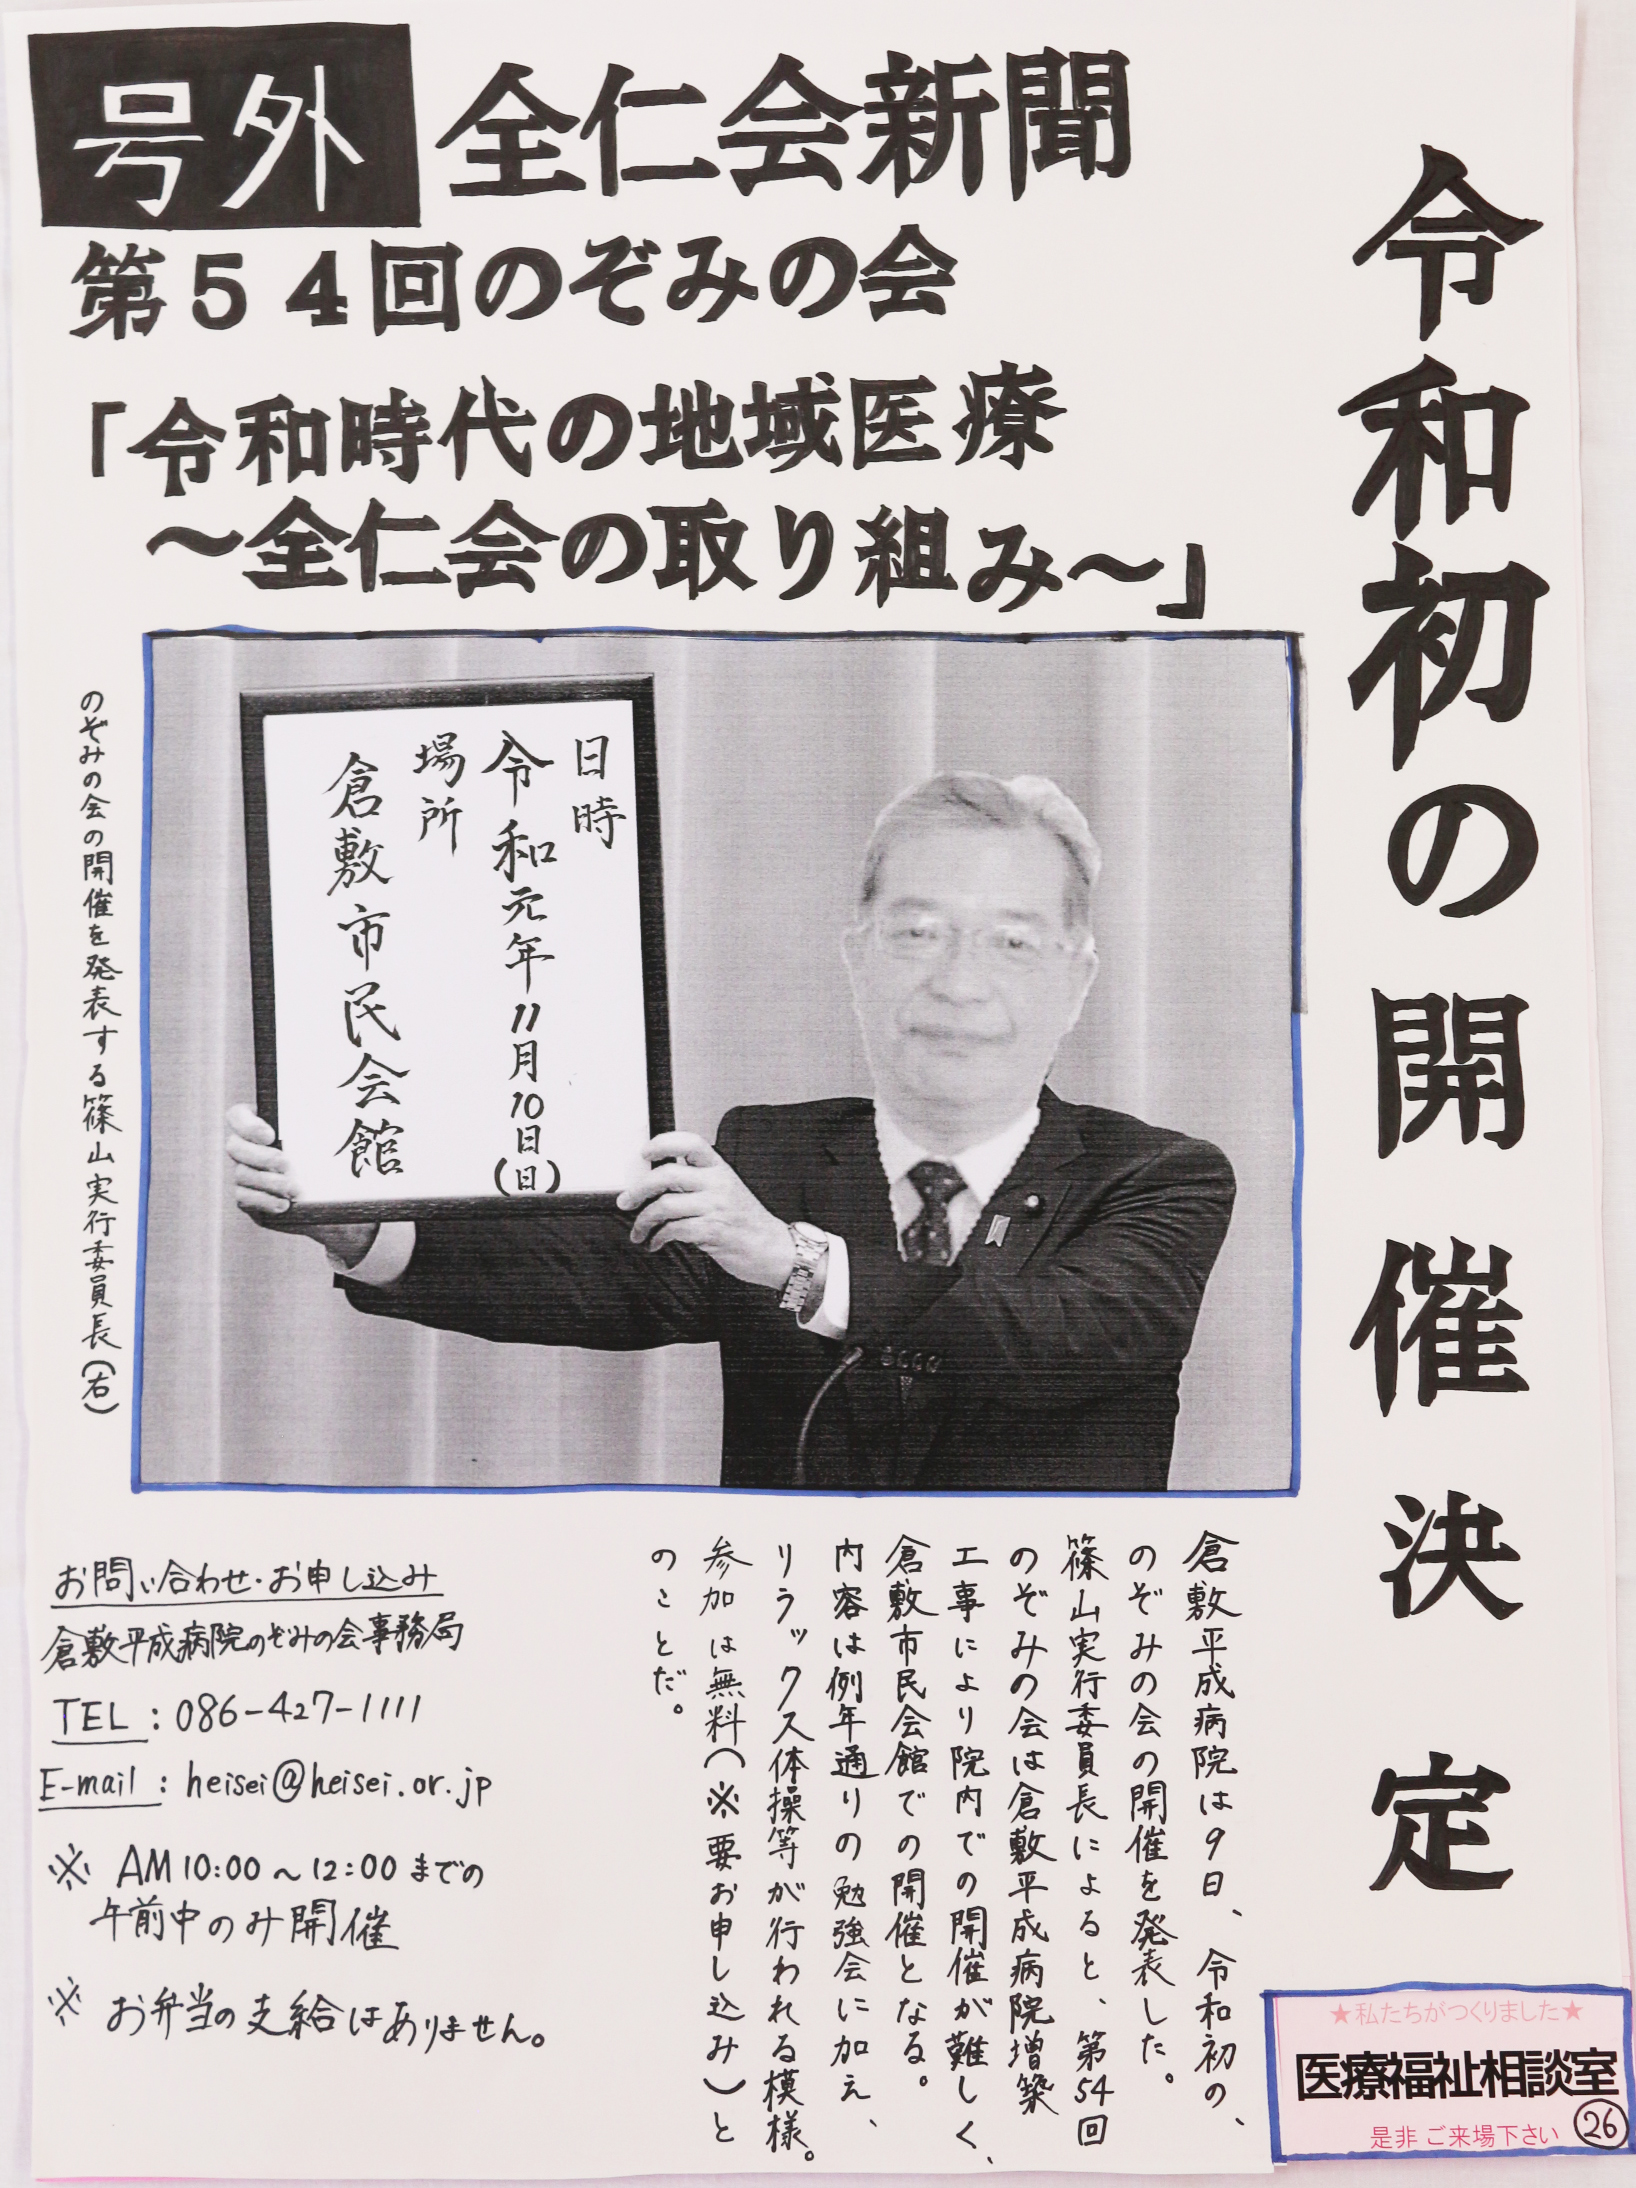 号外 全仁会新聞
令和初の開催決定
第54回のぞみの会
「令和時代の地域医療
～全仁会の取り組み～」
日時
令和元年11月10日(日)
場所
倉敷市民会館
のぞみの会の開催を発表する篠山実行委員長(右)
倉敷平成病院は9日、令和初の、
のぞみの会の開催を発表した。
篠山実行委員長によると、第54回
のぞみの会は倉敷平成病院増築
工事により院内での開催が難しく、
倉敷市民会館での開催となる。
内容は例年通りの勉強会に加え、
リラックス体操等が行われる模様。
参加は無料(※要お申し込み)と
のことだ。
お問い合わせ・お申し込み
倉敷平成病院のぞみの会事務局
TEL:086-427-1111
E-mail:heisei@heisei.or.jp
※ AM10:00～12:00までの
午前中のみ開催
※ お弁当の支給はありません。
★私たちがつくりました★
医療福祉相談室
是非 ご来場下さい 26